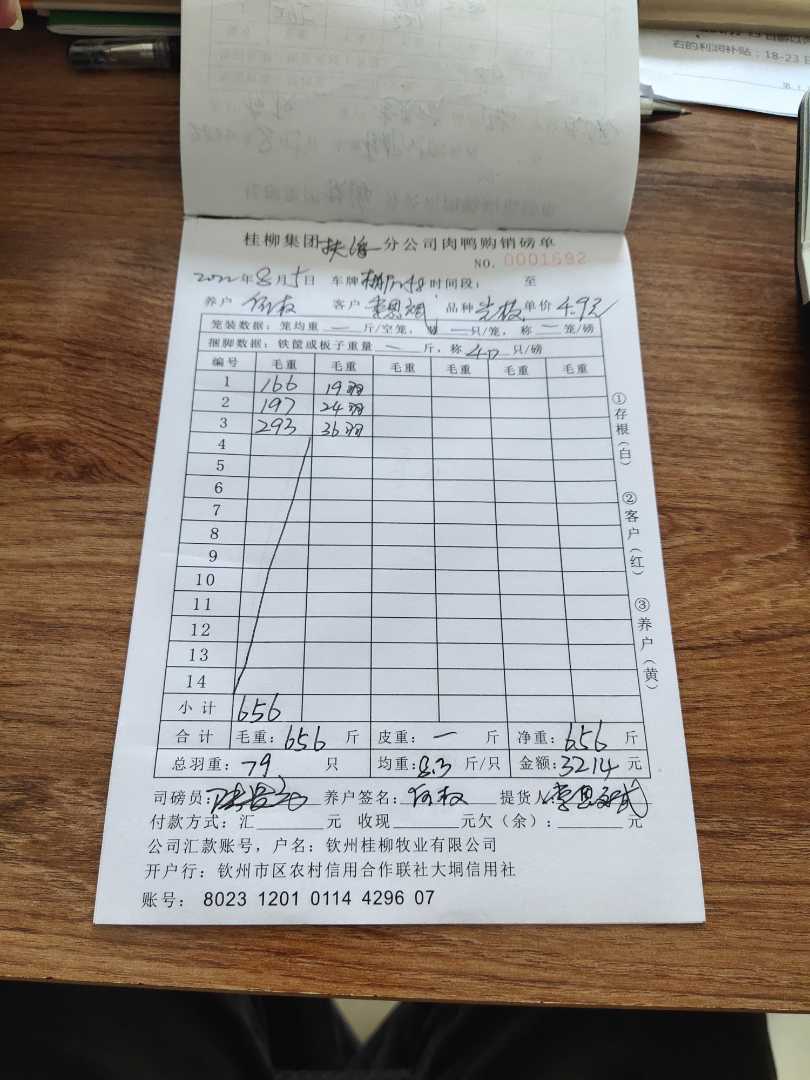 石的利润补贴：18-23日
桂柳集团 分公司肉鸭购销磅单
NO. 0001692
2022年8月5日 车牌 时间段： 至
养户 何权 客户 品种 单价 4.9元
笼装数据：笼均重 一 斤/空笼， 一只/笼， 称 一 笼/磅
捆脚数据：铁筐或板子重量 一 斤，称 40 只/磅
编号 毛重 毛重 毛重 毛重 毛重 毛重
1 166 19羽
2 197 24羽
3 293 36羽
4
5
6
7
8
9
10
11
12
13
14
小计 656
合计 毛重：656 斤 皮重：一 斤 净重：656 斤
总羽重：79 只 均重：8.3 斤/只 金额：3214 元
司磅员： 养户签名：何权 提货人：
付款方式：汇 元 收现 元欠（余）： 元
公司汇款账号，户名：钦州桂柳牧业有限公司
开户行：钦州市区农村信用合作联社大垌信用社
账号： 8023 1201 0114 4296 07
①存根（白）
②客户（红）
③养户（黄）